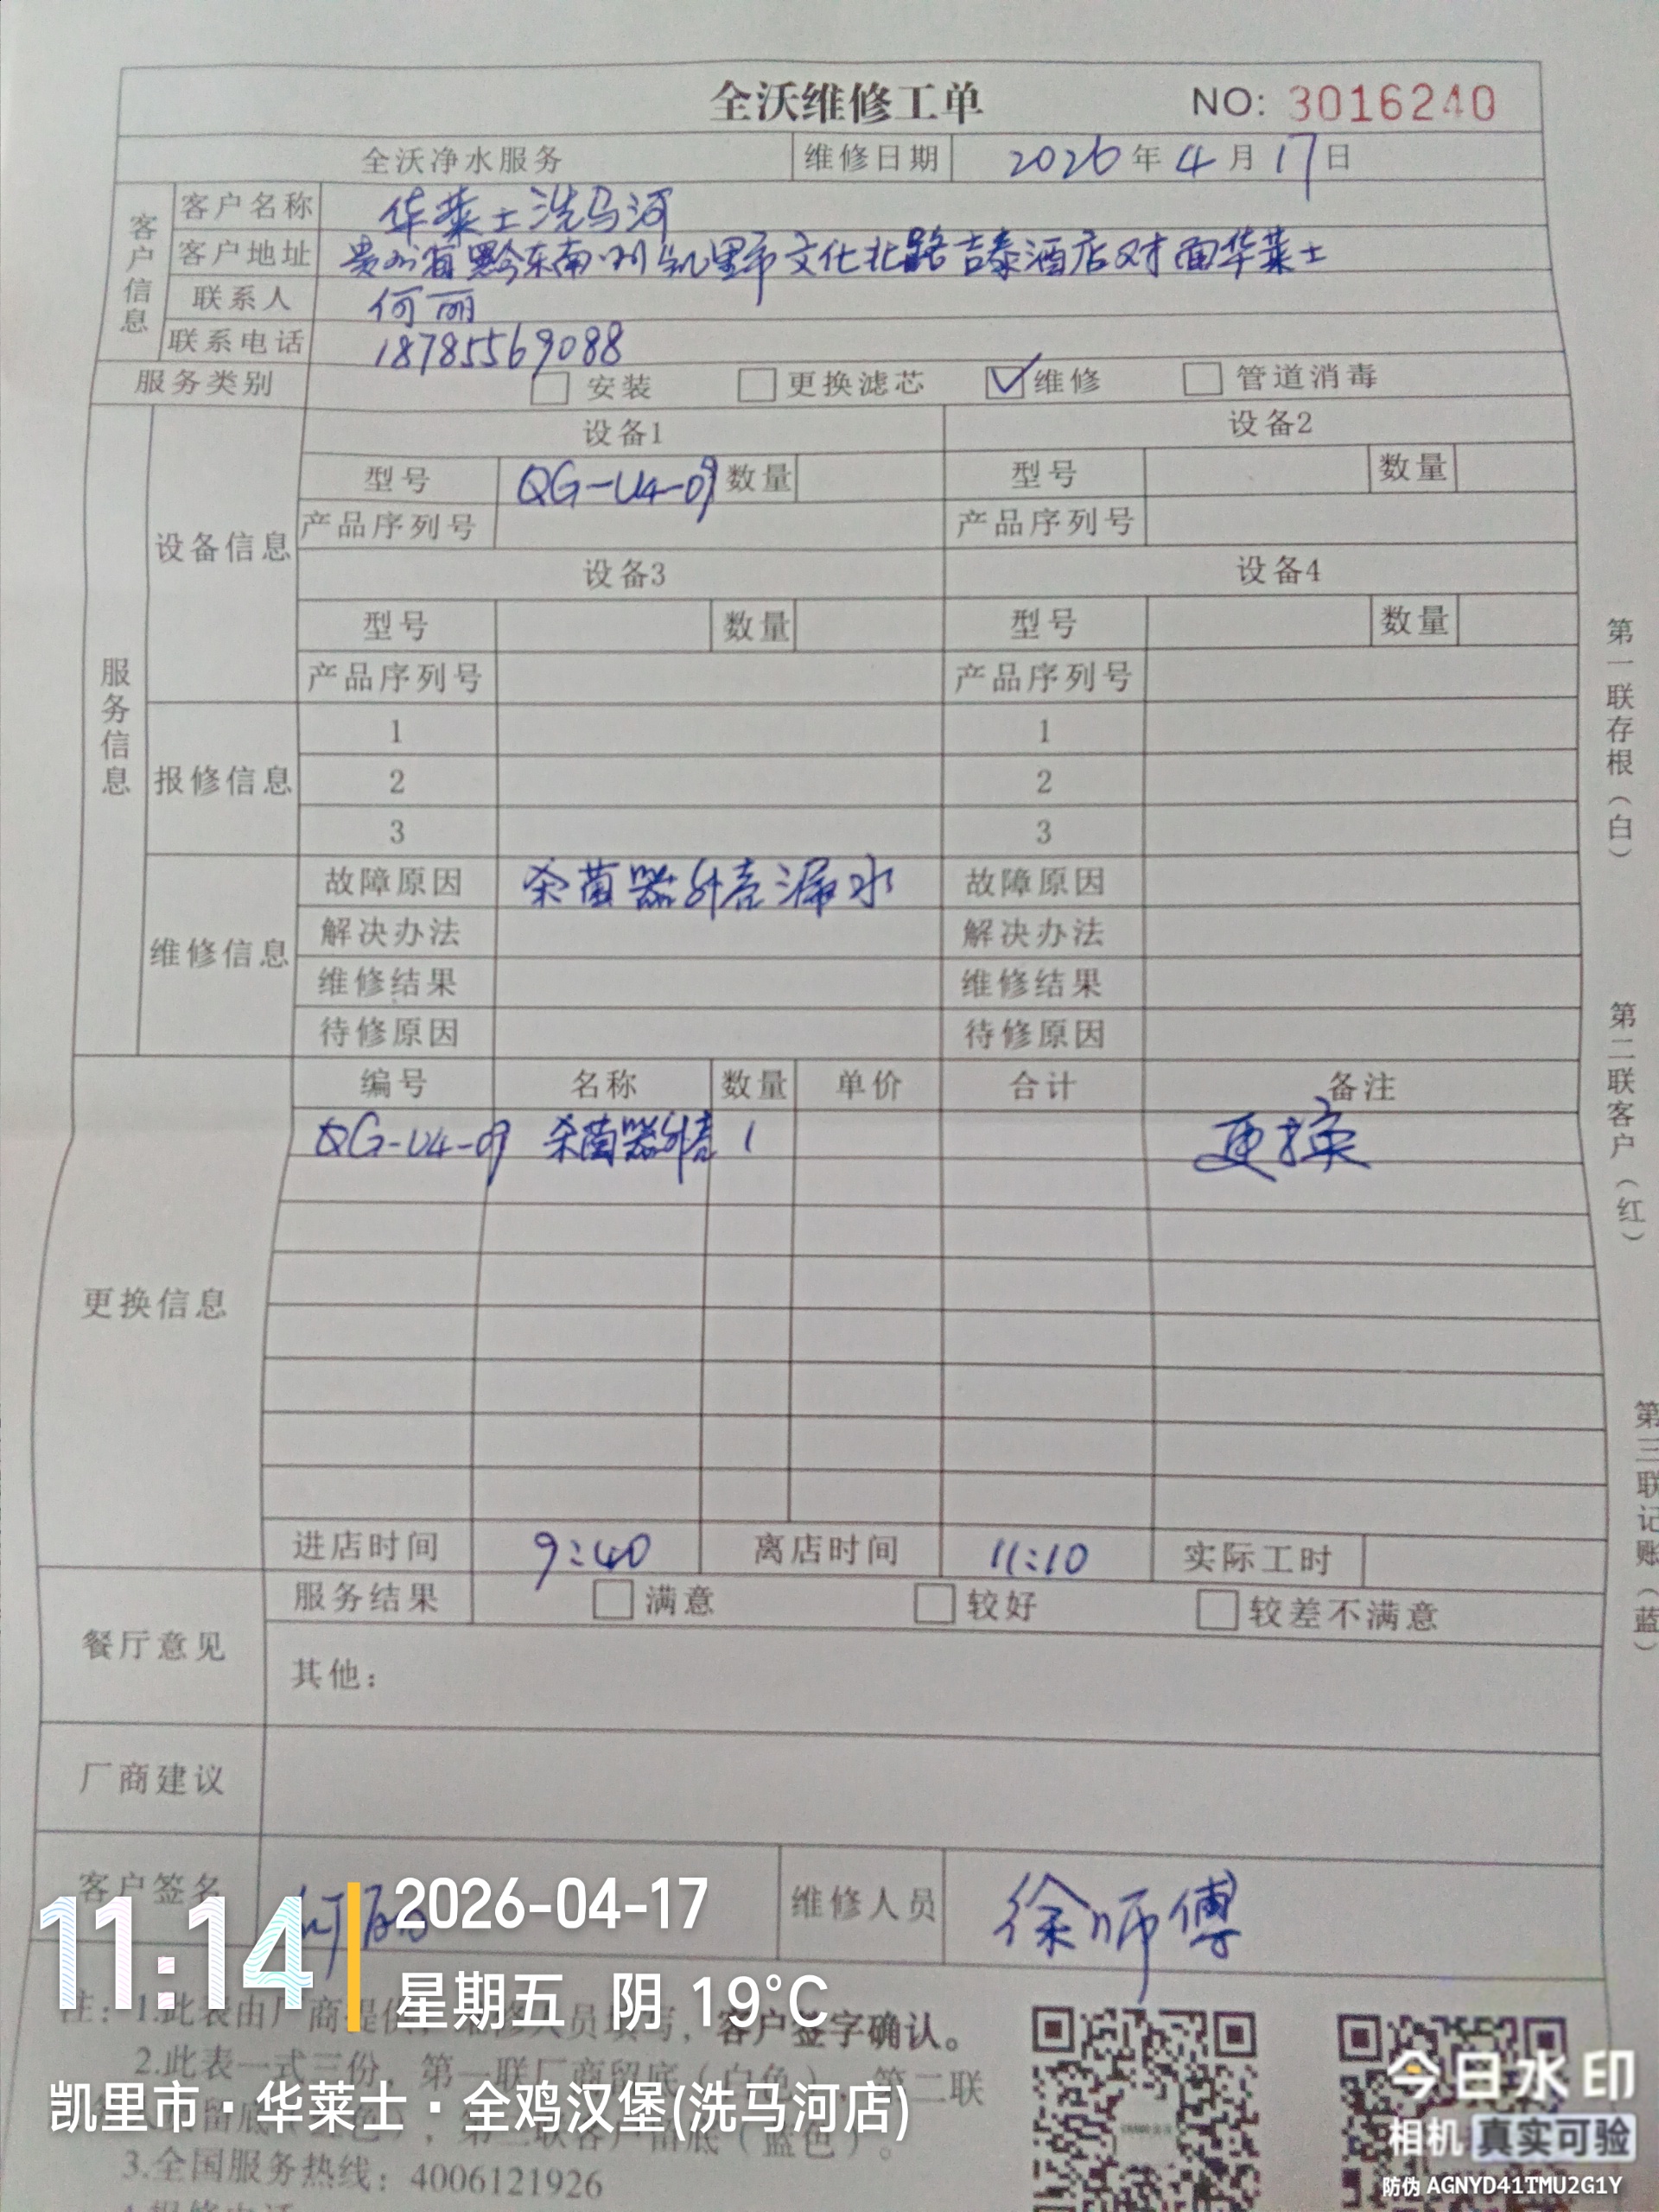 全沃维修工单 NO: 3016240
全沃净水服务 维修日期 2026年4月17日
客户信息
客户名称 华莱士洗马河
客户地址 贵州省黔东南州凯里市文化北路吉泰酒店对面华莱士
联系人 何丽
联系电话 18785569088
服务类别 安装 更换滤芯 维修 管道消毒
服务信息
设备信息
设备1 设备2
型号 QG-U4-09 数量 型号 数量
产品序列号 产品序列号
设备3 设备4
型号 数量 型号 数量
产品序列号 产品序列号
报修信息
1 1
2 2
3 3
维修信息
故障原因 杀菌器外壳漏水 故障原因
解决办法 解决办法
维修结果 维修结果
待修原因 待修原因
更换信息
编号 名称 数量 单价 合计 备注
QG-U4-09 杀菌器外壳 1 更换
进店时间 9:40 离店时间 11:10 实际工时
餐厅意见
服务结果 满意 较好 较差不满意
其他：
厂商建议
客户签名 何丽 维修人员 徐师傅
注：1.此表由厂商提供，维修人员填写，客户签字确认。
2.此表一式三份，第一联厂商留底（白色），第二联
留底（色），第三联客户留底（蓝色）。
3.全国服务热线：4006121926
第一联存根（白）
第二联客户（红）
第三联记账（蓝）
11:14
2026-04-17
星期五 阴 19°C
凯里市·华莱士·全鸡汉堡(洗马河店)
今日水印
相机 真实可验
防伪 AGNYD41TMU2G1Y